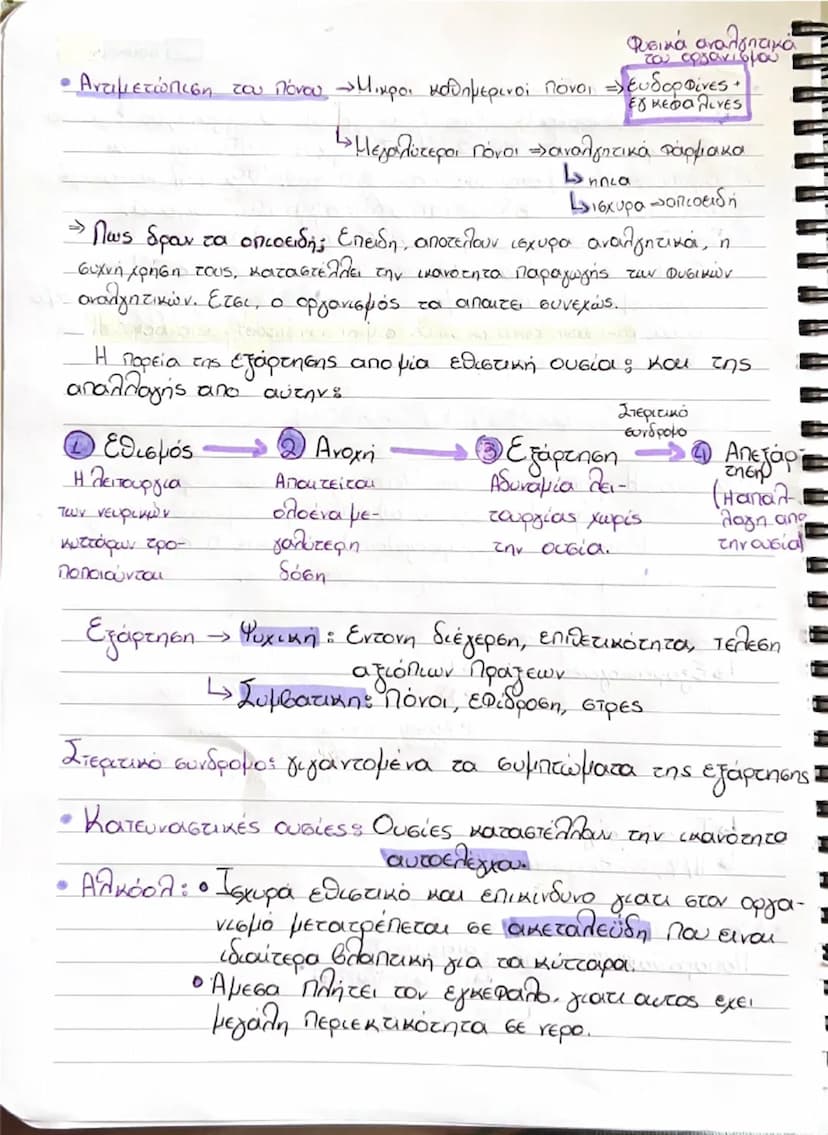 Φυσικά αναλγητικά
του οργανισμού
• Αντιμετώπιση του Πόνου → Μικροι καθημερινοί πόνοι ⇒ ενδορφίνες +
εγκεφαλίνες
↳ Μεγαλύτεροι πόνοι ⇒ αναλγητικά φάρμακα
↳ ηπια
↳ ισχυρα → οπιοειδή
⇒ Πως δραν τα οπιοειδή; Επειδη, αποτελουν ισχυρα αναλγητικά, η
συχνή χρήση τους, καταστέλλει την ικανότητα παραγωγής των φυσικών
αναλγητικών. Ετσι, ο οργανισμός τα απαιτει συνεχώς.
Η πορεία της εξάρτησης απο μία εθιστική ουσία; και της
απαλλαγής απο αύτην:
Στερητικό
συνδρομο
1 Εθισμός → 2 Ανοχή → 3 Εξάρτηση → 4 Απεξάρ-
τηση
Η λειτουργια Απαιτείται Αδυναμία λει- (Η απαλ-
των νευρικών ολοένα με- τουργίας χωρίς λαγη απο
κυττάρων τρο- γαλύτερη την ουσία. την ουσία)
ποποιώνται δόση
Εξάρτηση → Ψυχική: Εντονη διέγερση, επιθετικότητα, τέλεση
αξιόπιων πράξεων
↳ Σωματικη: Πόνοι, εφίδρωση, στρες
Στερητικό συνδρομο: γιγαντομένα τα συμπτώματα της εξάρτησης
• Κατευναστικές ουσιες: Ουσίες καταστέλλουν την ικανότητα
αυτοελέγχου.
• Αλκόολ: • Ισχυρά εθιστικό και επικίνδυνο γιατι στον οργα-
νισμό μετατρέπεται σε ακεταλεύδη που ειναι
ιδιαίτερα βλαπτική για τα κύτταρα.
• Άμεσα πλήτει τον εγκεφαλο, γιατι αυτος εχει
μεγάλη περιεκτικότητα σε νερο.